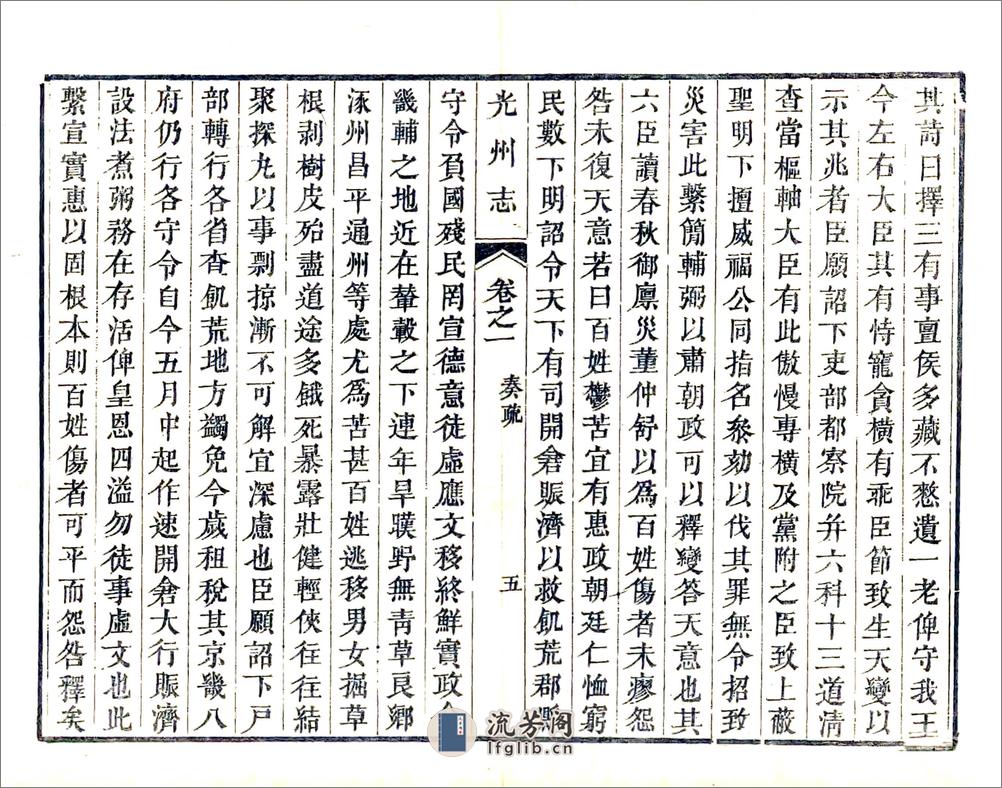 其詩曰擇三有事亶侯多藏不憖遺一老俾守我王
今左右大臣其有恃寵貪橫有乖臣節致生天變以
示其兆者臣願詔下吏部都察院幷六科十三道清
查當樞軸大臣有此傲慢專橫及黨附之臣致上蔽
聖明下擅威福公同指名參劾以伐其罪無令招致
災害此繫簡輔弼以肅朝政可以釋變答天意也其
六臣讀春秋御廩災董仲舒以爲百姓傷者未瘳怨
咎未復天意若曰百姓鬱苦宜有惠政朝廷仁恤窮
民數下明詔令天下有司開倉賑濟以救飢荒郡縣
光州志 卷之一 奏疏 五
守令負國殘民罔宣德意徒虛應文移終鮮實政今
畿輔之地近在輦轂之下連年旱暵野無青草良鄉
涿州昌平通州等處尤爲苦甚百姓逃移男女掘草
根剥樹皮殆盡道途多餓死暴露壯健輕俠往往結
聚探丸以事剽掠漸不可解宜深慮也臣願詔下戶
部轉行各省查飢荒地方蠲免今歲租稅其京畿八
府仍行各守令自今五月中起作速開倉大行賑濟
設法煮粥務在存活俾皇恩四溢勿徒事虛文也此
繫宣實惠以固根本則百姓傷者可平而怨咎釋矣
流芳阁
lfglib.cn